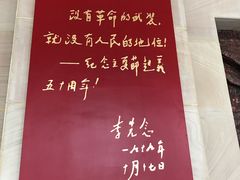 没有革命的武装，
就没有人民的地位！
——纪念文家市起义
五十周年！
李先念
一九七九年
十月十七日